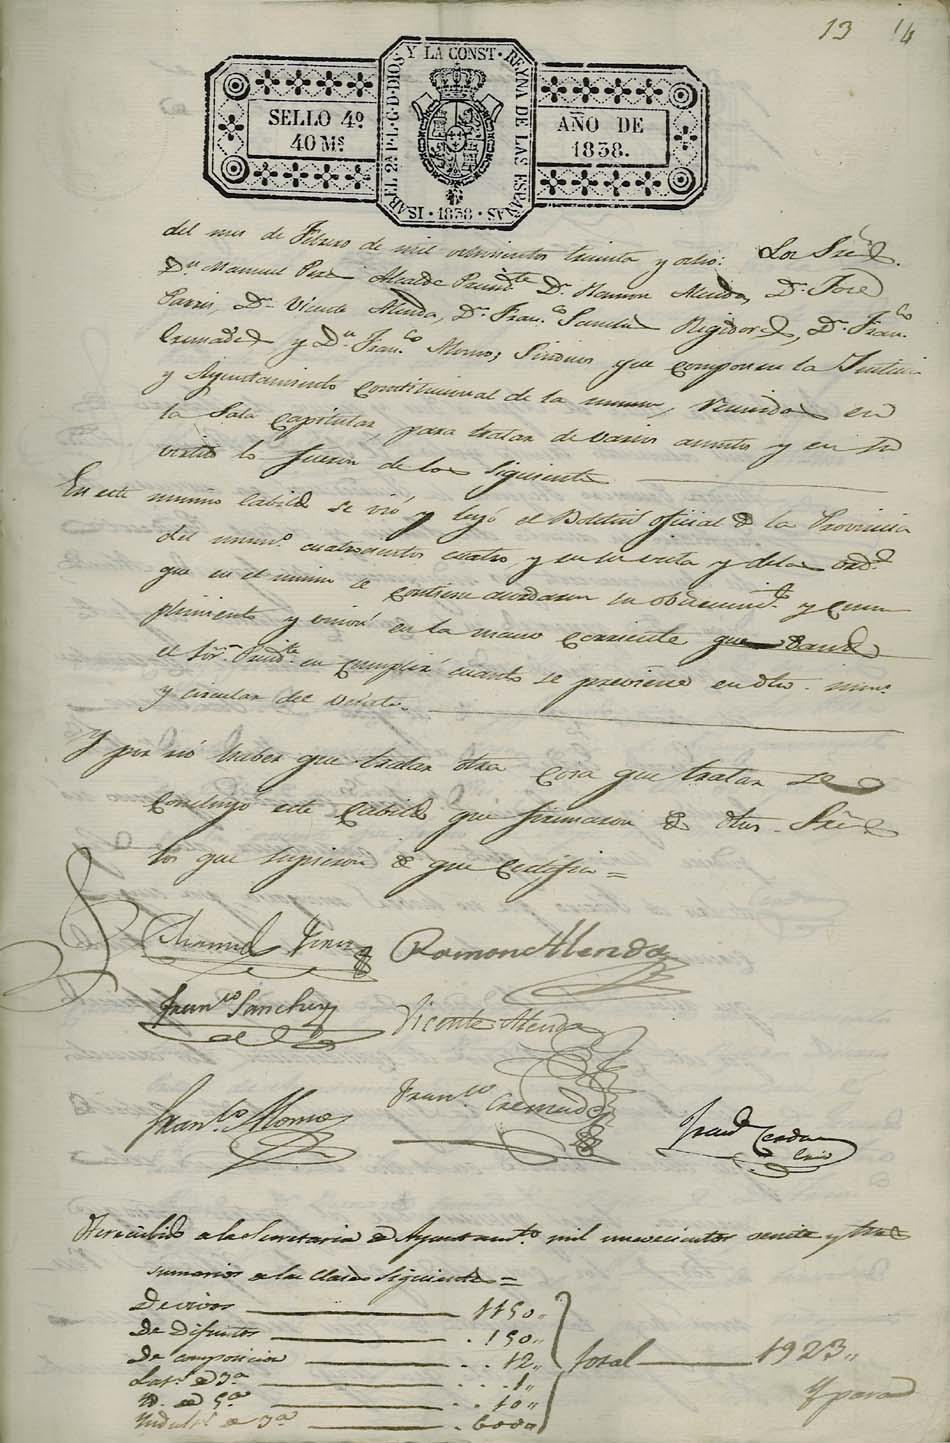 13 14
ISABEL 2ª P. L. G. D. DIOS Y LA CONST. REYNA DE LAS ESPAÑAS · 1838 ·
SELLO 4º
40 Mˢ
AÑO DE
1838.
del mes de Febrero de mil ochocientos treinta y ocho: Los Sreˢ.
Dⁿ Manuel Perez Alcalde Presidᵗᵉ Dⁿ Ramon Alenda, Dⁿ José
Dⁿ Vicente Alenda, Dⁿ Franᶜᵒ Sanchez Regidores, Dⁿ Franᶜᵒ
Cremades y Dⁿ Franᶜᵒ Alonso, Sindicos, que componen la Justicia
y Ayuntamiento Constitucional de la misma, reunidos en
la Sala Capitular, para tratar de varios asuntos y en su
virtud lo fueron de los siguiente
En este mismo Cabildo se vió y leyó el Boletin oficial de la Provincia
del numº cuatrocientos cuatro, y en su vista y de las ordˢ
que en el mismo se contiene acordaron su observancia y cum
plimiento y en la mano corriente que
el Sor Presidᵗᵉ en cumplir cuanto se previene en dho. numº
y circular del veinte.
Y por nó haber que tratar otra cosa que tratar se
concluyó este Cabildo que firmaron de dhos. Sreˢ
los que supieron de que certifico =
Manuel Perez Ramon Alenda
Franᶜᵒ Sanchez Vicente Alenda
Franᶜᵒ Alonso Franᶜᵒ Cremades Franᶜᵒ Cerdan
Srio
He recibido a la Secretaria de Ayuntamᵗᵒ mil novecientos veinte y tres
sumarios a las clases siguientes =
De vivos 1150"
De difuntos 150"
De composicion 12"
de 3ª 1"
Yd. de 5ª 10"
Yndultˢ de 3ª 600"
total 1923"
Y para